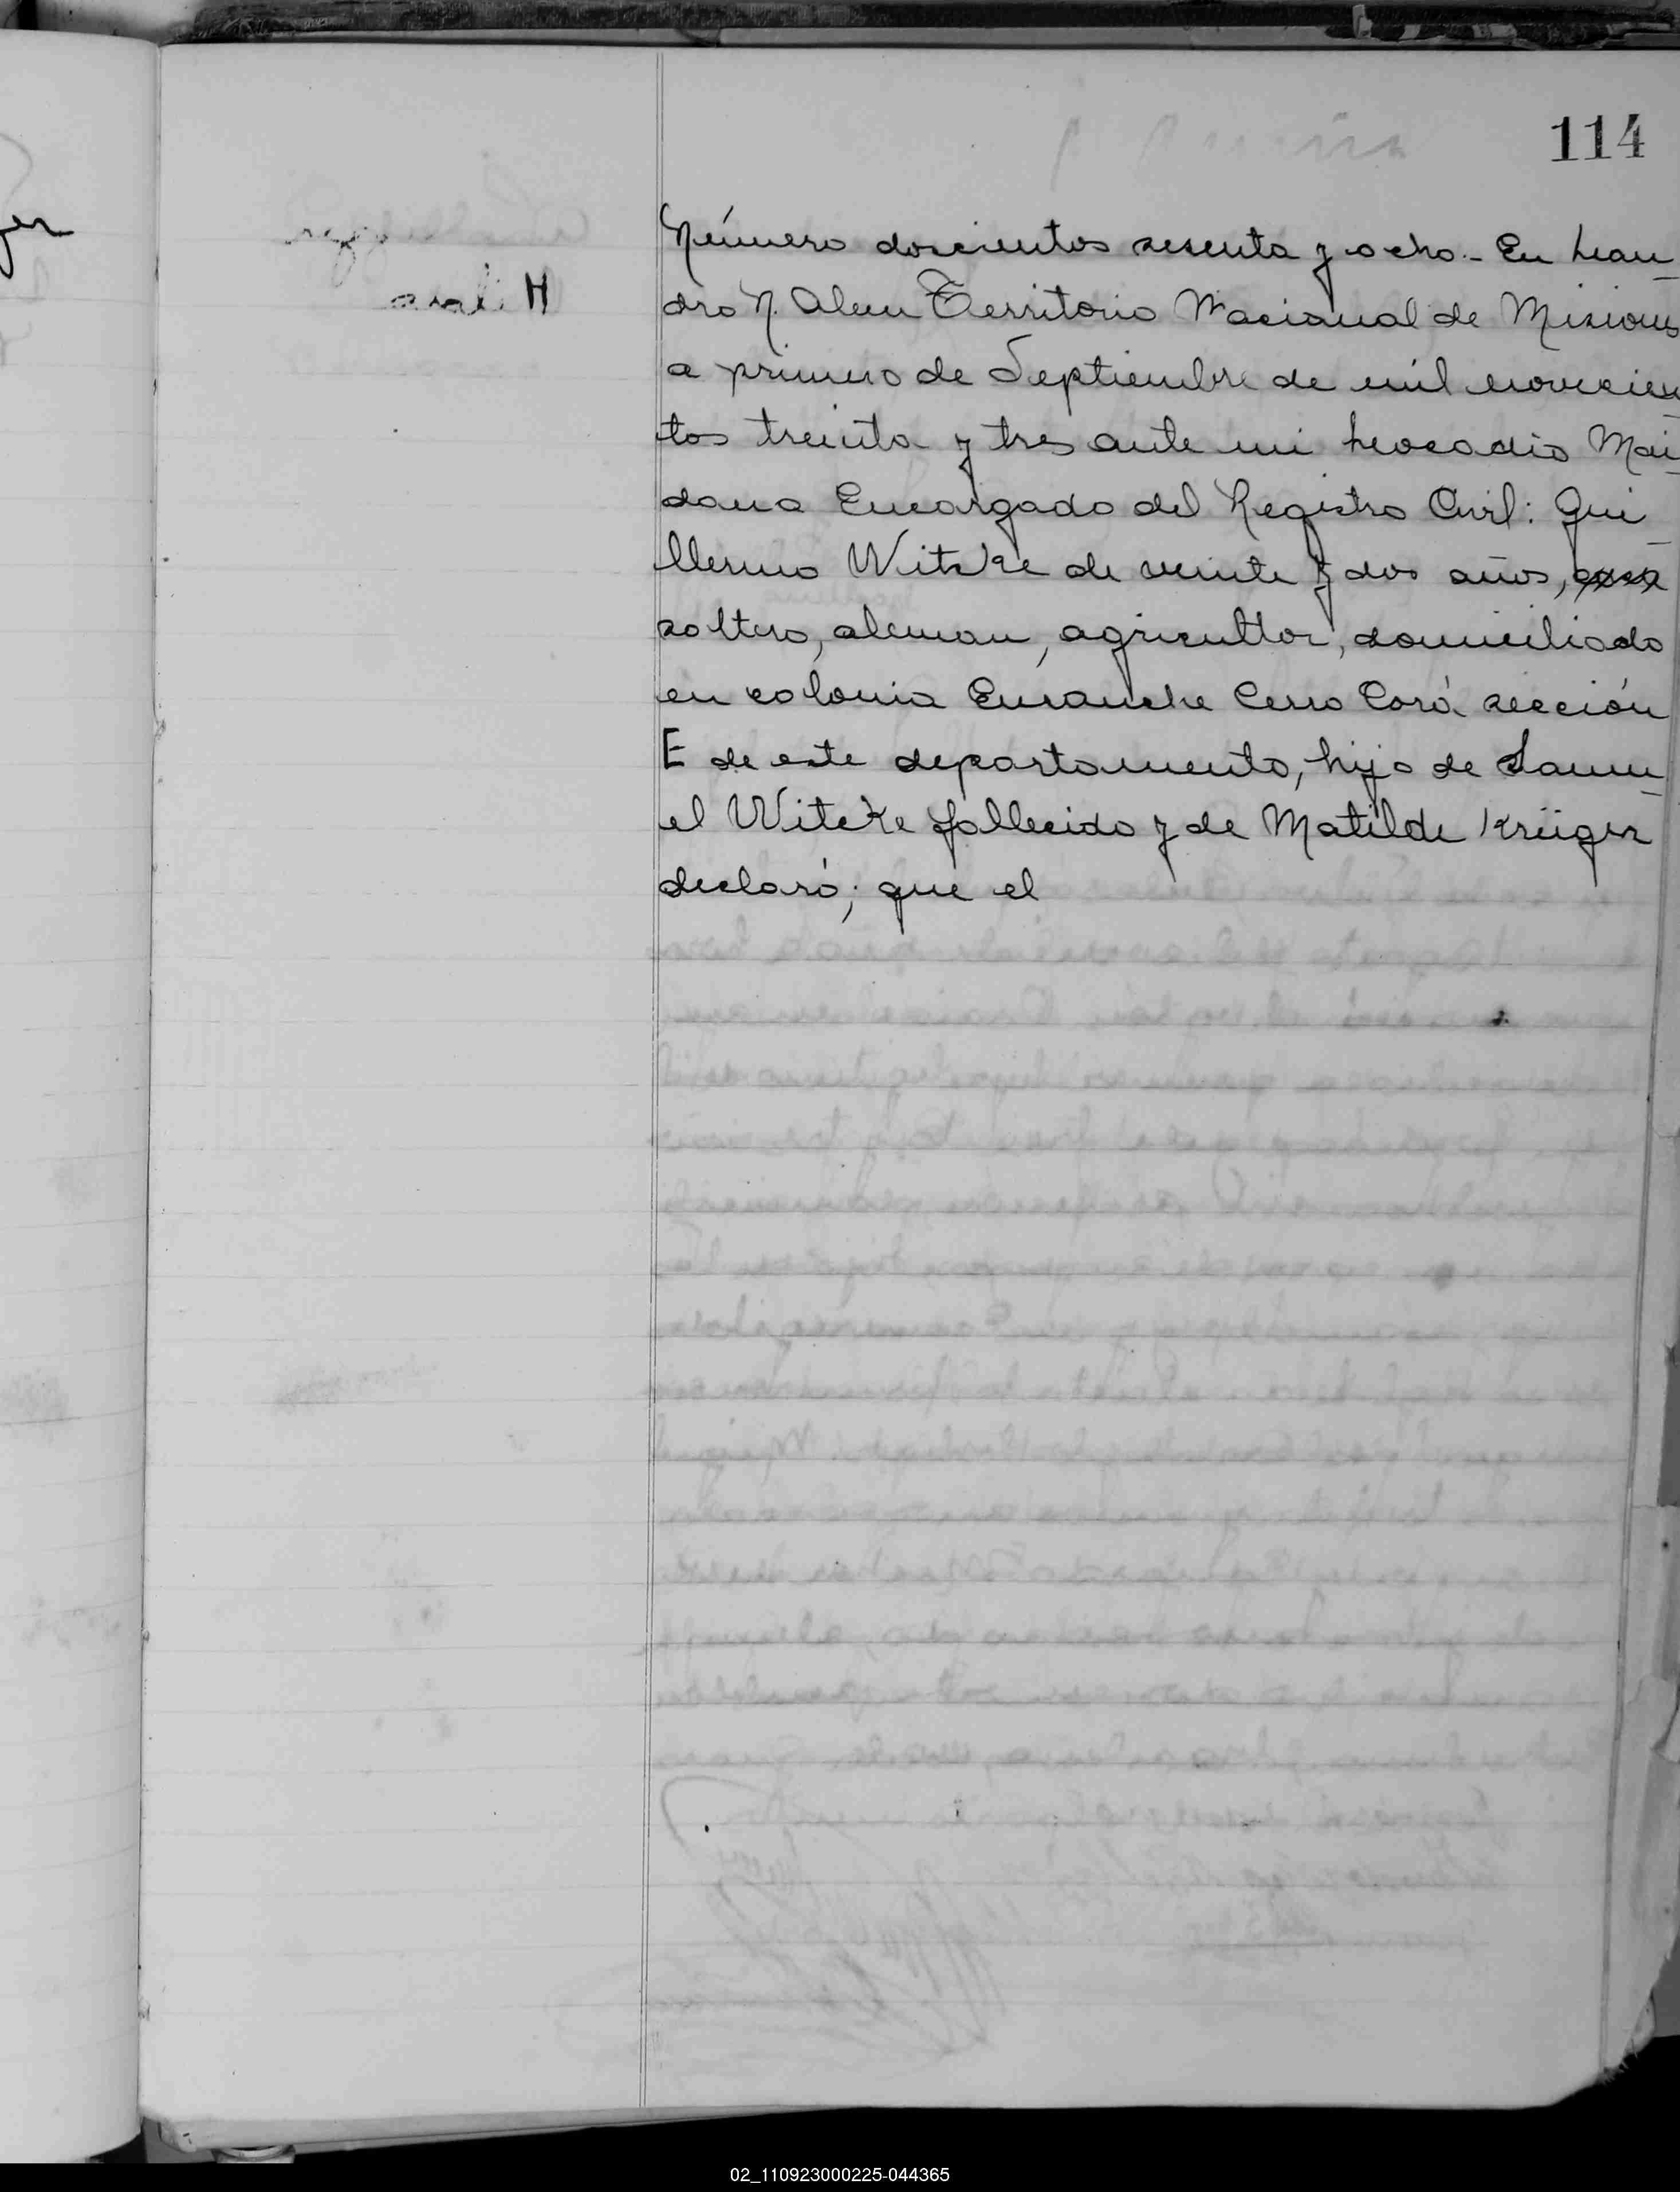 114
Número doscientos sesenta y ocho.- En Lean-
dro N. Alem Territorio Nacional de Misiones
a primero de Septiembre de mil novecien-
tos treinta y tres ante mi Leocadio Mai-
dana Encargado del Registro Civil: Gui-
llermo Witzke de veinte y dos años,
soltero, aleman, agricultor, domiciliado
en colonia Ensanche Cerro Corá sección
E de este departamento, hijo de Samu-
el Witzke fallecido y de Matilde Krüger
declaró; que el
02_110923000225-044365